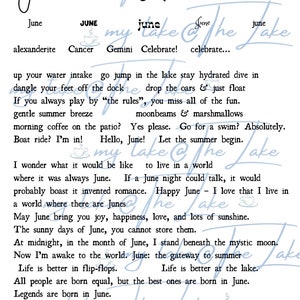 June JUNE june June june
alexanderite Cancer Gemini Celebrate! celebrate...
up your water intake go jump in the lake stay hydrated dive in
dangle your feet off the dock drop the oars & just float
If you always play by "the rules", you miss all of the fun.
gentle summer breeze moonbeams & marshmallows
morning coffee on the patio? Yes please. Go for a swim? Absolutely.
Boat ride? I'm in! Hello, June! Let the summer begin.
I wonder what it would be like to live in a world
where it was always June. If a June night could talk, it would
probably boast it invented romance. Happy June – I love that I live in
a world where there are Junes
May June bring you joy, happiness, love, and lots of sunshine.
The sunny days of June, you cannot store them.
At midnight, in the month of June, I stand beneath the mystic moon.
Now I'm awake to the world. June: the gateway to summer
Life is better in flip-flops. Life is better at the lake.
All people are born equal, but the best ones are born in June.
Legends are born in June.
my lake@The Lake
my lake@The Lake
my lake@The Lake